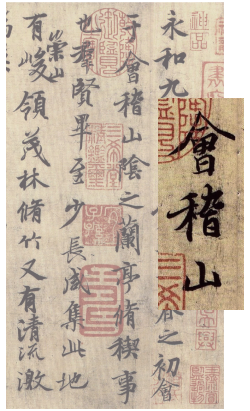 永和九
暮春之初會
于會稽山陰之蘭亭脩稧事
也羣賢畢至少長咸集此地
有崇山峻領茂林脩竹又有清流激
會稽山